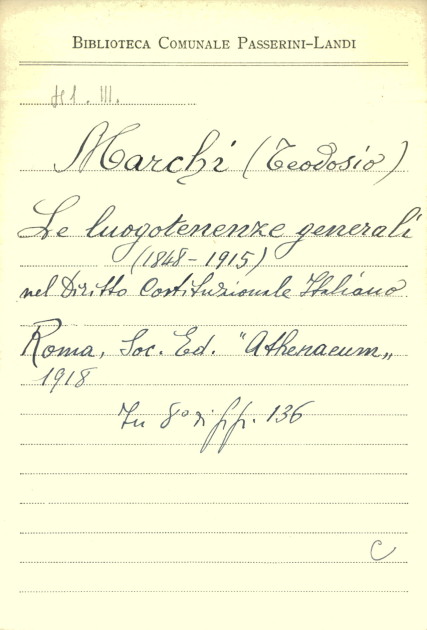 BIBLIOTECA COMUNALE PASSERINI-LANDI
Marchi (Teodosio)
Le luogotenenze generali
(1848-1915)
nel Diritto Costituzionale Italiano
Roma, Soc. Ed. "Athenaeum„
1918
In 8° di pp. 136
C